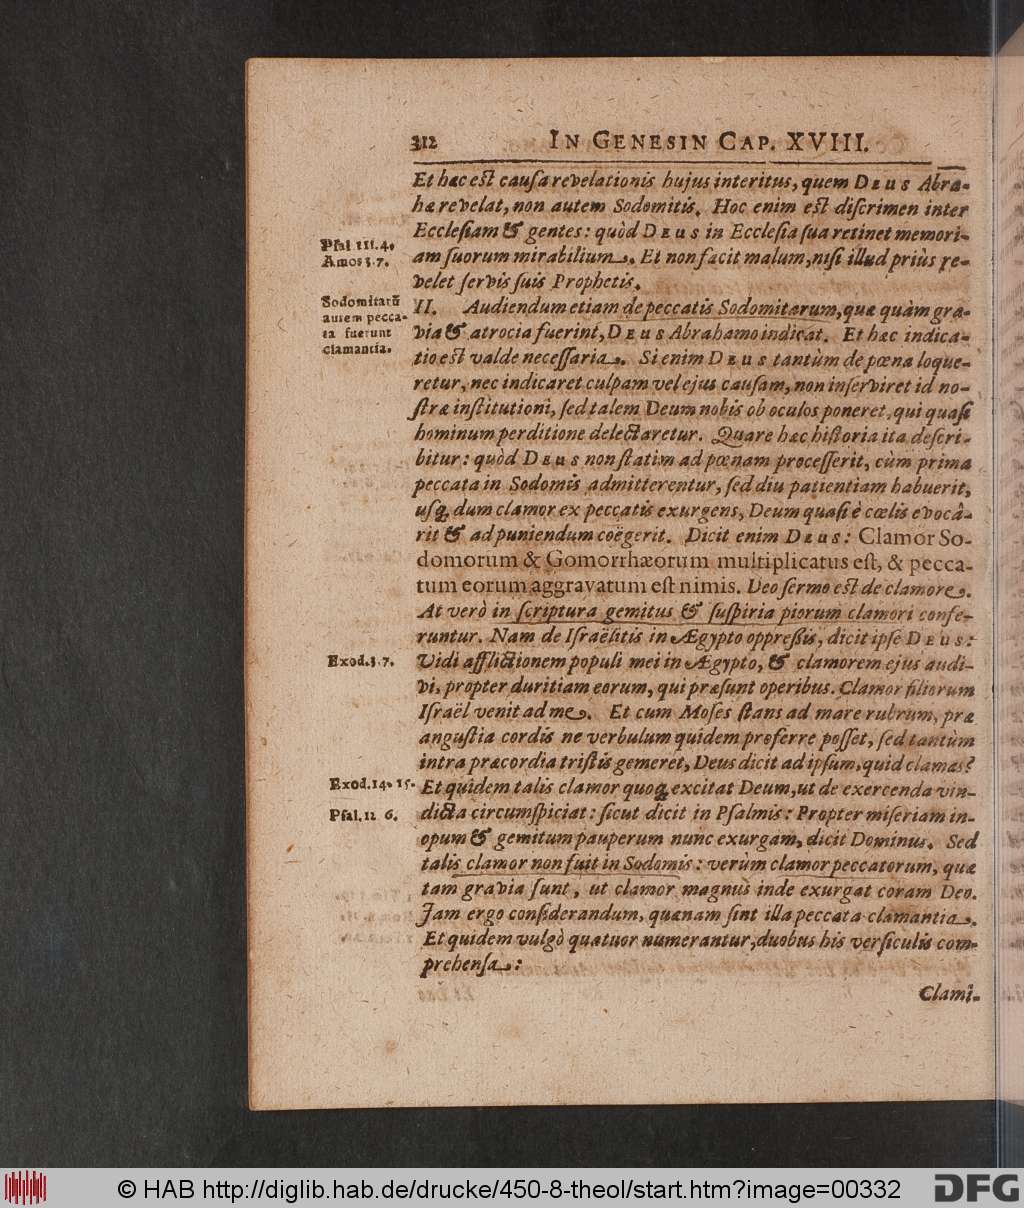 312 IN GENESIN CAP. XVIII.
Et hæc eſt cauſa revelationis hujus interitus, quem DEUS Abra-
hæ revelat, non autem Sodomitis. Hoc enim eſt diſcrimen inter
Eccleſiam & gentes: quòd DEUS in Eccleſia ſua retinet memori-
am ſuorum mirabilium. Et non facit malum, niſi illud priùs re-
velet ſervis ſuis Prophetis.
Pſal 111.4.
Amos 3.7.
II. Audiendum etiam de peccatis Sodomitarum, quæ quàm gra-
via & atrocia fuerint, DEUS Abrahamo indicat. Et hæc indica-
tio eſt valde neceſſaria. Si enim DEUS tantùm de pœna loque-
retur, nec indicaret culpam vel ejus cauſam, non inſerviret id no-
ſtræ inſtitutioni, ſed talem Deum nobis ob oculos poneret, qui quaſi
hominum perditione delectaretur. Quare hæc hiſtoria ita deſcri-
bitur: quòd DEUS non ſtatim ad pœnam proceſſerit, cùm prima
peccata in Sodomis admitterentur, ſed diu patientiam habuerit,
uſq; dum clamor ex peccatis exurgens, Deum quaſi è cœlis evocâ-
rit & ad puniendum coëgerit. Dicit enim DEUS: Clamor So-
domorum & Gomorrhæorum multiplicatus eſt, & pecca-
tum eorum aggravatum eſt nimis. Ubi ſermo eſt de clamore.
At verò in ſcriptura gemitus & ſuſpiria piorum clamori confe-
runtur. Nam de Iſraëlitis in Ægypto oppreſſis, dicit ipſe DEUS:
Vidi afflictionem populi mei in Ægypto, & clamorem ejus audi-
vi, propter duritiam eorum, qui præſunt operibus. Clamor filiorum
Iſraël venit ad me. Et cum Moſes ſtans ad mare rubrum, præ
anguſtia cordis ne verbulum quidem proferre poſſet, ſed tantùm
intra præcordia triſtis gemeret, Deus dicit ad ipſum, quid clamas?
Et quidem talis clamor quoq; excitat Deum, ut de exercenda vin-
dicta circumſpiciat: ſicut dicit in Pſalmis: Propter miſeriam in-
opum & gemitum pauperum nunc exurgam, dicit Dominus. Sed
talis clamor non fuit in Sodomis: verùm clamor peccatorum, quæ
tam gravia ſunt, ut clamor magnus inde exurgat coram Deo.
Jam ergo conſiderandum, quænam ſint illa peccata clamantia.
Et quidem vulgò quatuor numerantur, duobus his verſiculis com-
prehenſa:
Sodomitarũ
autem pecca-
ta fuerunt
clamantia.
Exod.3.7.
Exod.14. 15.
Pſal.12 6.
Clami-
© HAB http://diglib.hab.de/drucke/450-8-theol/start.htm?image=00332
DFG